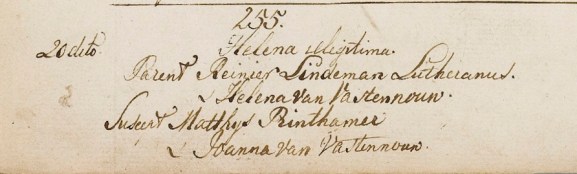 255.
20 dito. Helena illegitima.
Parent Reinier Lindeman Lutheranus.
& Helena van Vastennoun.
Suscert Matthys Printhamer
& Joanna van Vastennoun.